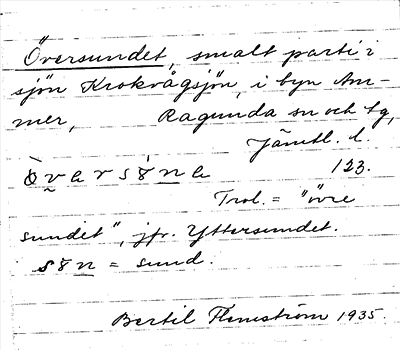 Översundet, smalt parti i
sjön Krokvågsjön, i byn Am-
mer, Ragunda sn och tg,
Jämtl. l.
123.
Trol. = "övre
sundet", jfr. Yttersundet.
= sund.
Bertil Flemström 1935.